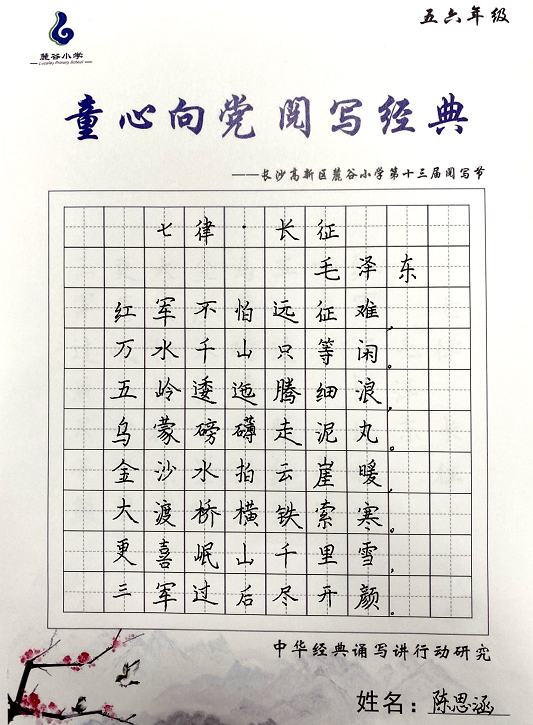 五六年级
麓谷小学
Lucaley Primary School
童心向党 阅写经典
——长沙高新区麓谷小学第十三届阅写节
七律·长征
毛泽东
红军不怕远征难,
万水千山只等闲。
五岭逶迤腾细浪,
乌蒙磅礴走泥丸。
金沙水拍云崖暖,
大渡桥横铁索寒。
更喜岷山千里雪,
三军过后尽开颜。
中华经典诵写讲行动研究
姓名:陈思涵